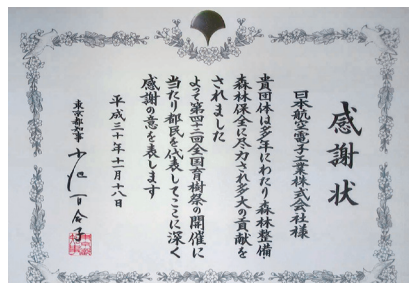 感謝状
日本航空電子工業株式会社様
貴団体は多年にわたり森林整備
森林保全に尽力され多大の貢献を
されました
よって第四十二回全国育樹祭の開催に
当たり都民を代表してここに深く
感謝の意を表します
平成三十年十一月十八日
東京都知事 小池百合子